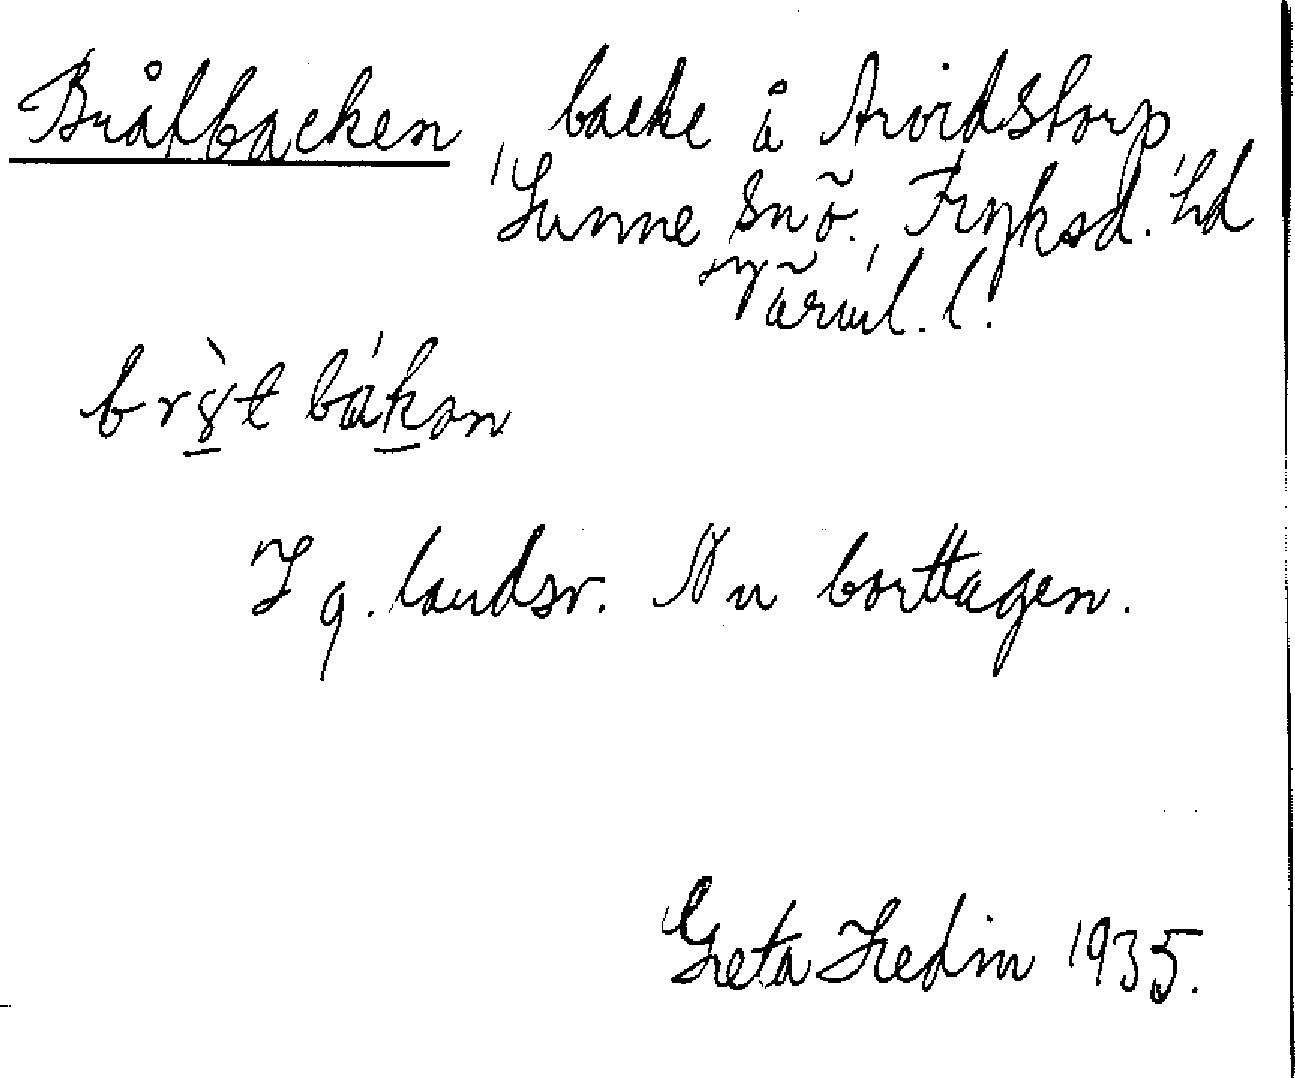 Bråtbacken, backe å Arvidstorp,
Sunne sn ö. Fryksd. hd
Värml. l.
I g. landsv. Nu borttagen.
Greta Hedin 1935.